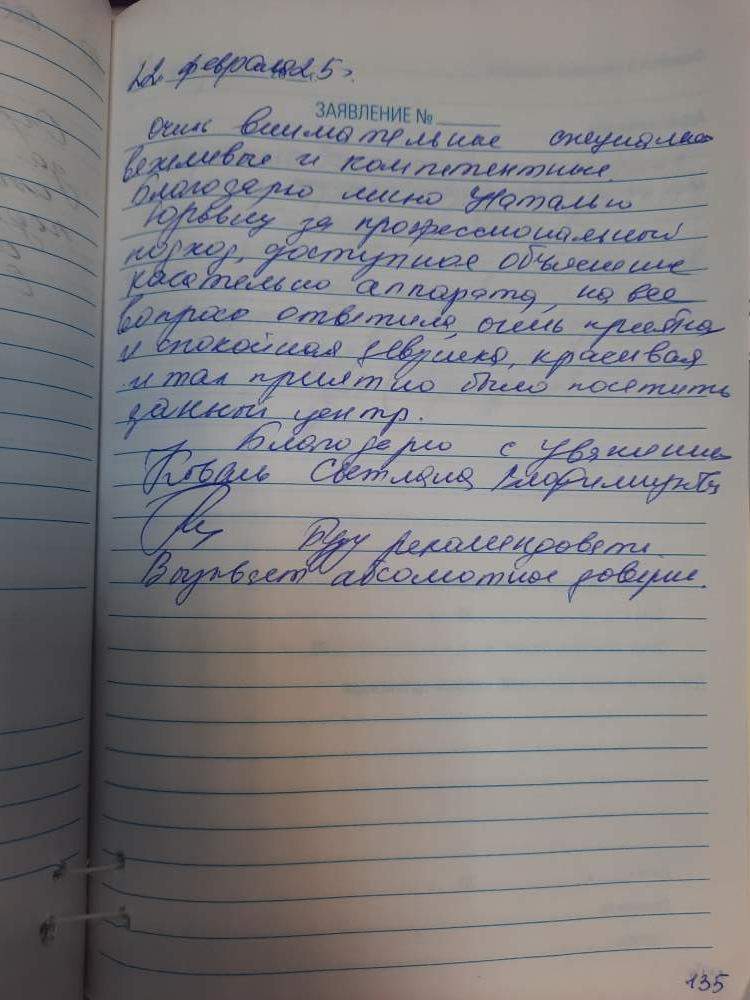 22 февраля 25 г.
ЗАЯВЛЕНИЕ №
очень внимательные специалисты
вежливые и компетентные.
Благодарю лично Наталью
Юрьевну за профессиональный
подход, доступное объяснение
касательно аппарата, на все
вопросы ответила, очень приятная
и спокойная девушка, красивая
и так приятно было посетить
данный центр.
Благодарю с уважением
Коваль Светлана Владимировна
Буду рекомендовать.
Вызывает абсолютное доверие.
135